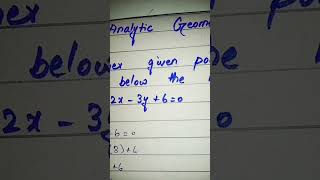 Analytic Geom
ex given po
below the
2x - 3y + 6 = 0
2x - 3y + 6 = 0
6 = 0
3) + 6
+ 6